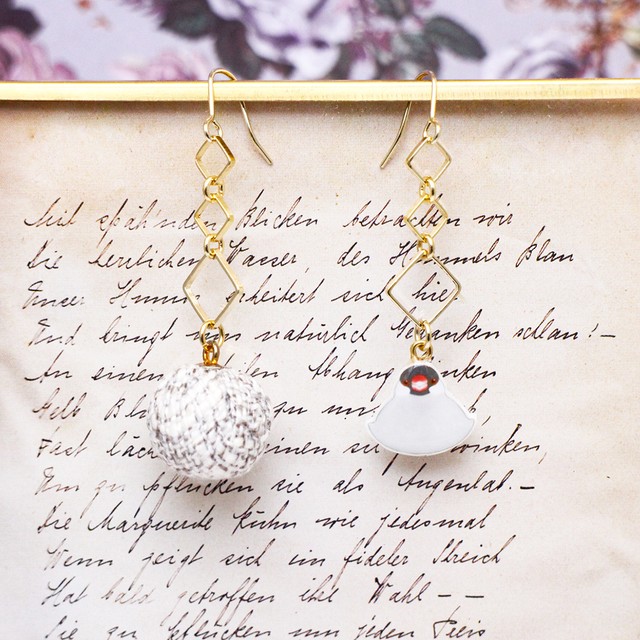 Mit späh'nden Blicken betrachten wir
Die herrlichen Wasser, des Himmels Blau
Unser Humor erheitert sich hier
Und bringt uns natürlich Gedanken schlau! —
An einem Abhang
Gelb zu
Fast
Um zu pflücken sie als Augenlab. —
Die Marguerite kühn wie jedesmal
Wenn zeigt sich ein fideler Streich
Hat bald getroffen ihre Wahl — —
Sie zu pflücken um jeden Preis